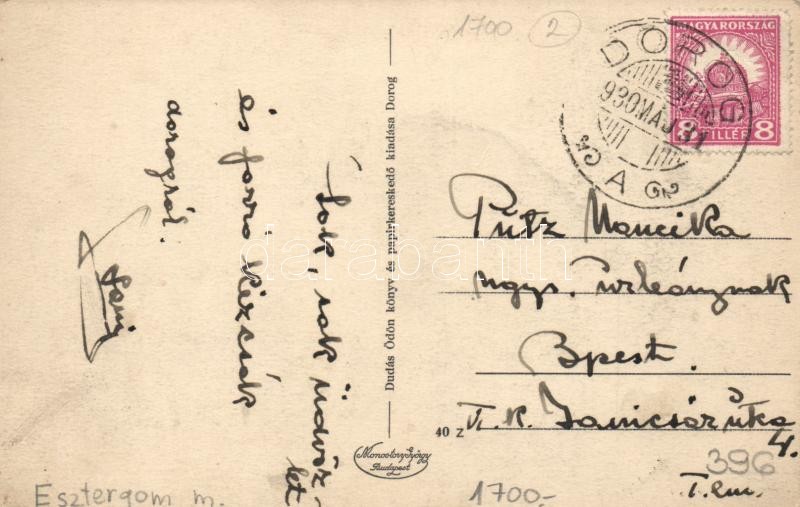 1700 2
MAGYARORSZÁG
8 FILLÉR 8
DOROG
930 MÁJ 31
A
Sok, sok üdvöz-
let
és forró kézcsók
dorogról.
Dudás Ödön könyv és papirkereskedő kiadása Dorog
Pütz Mancika
ngys. úrleánynak
Bpest.
Janicsár útka
4.
I. em.
40 Z
Monostory György
Budapest
396
1700.-
Esztergom m.
darabanth